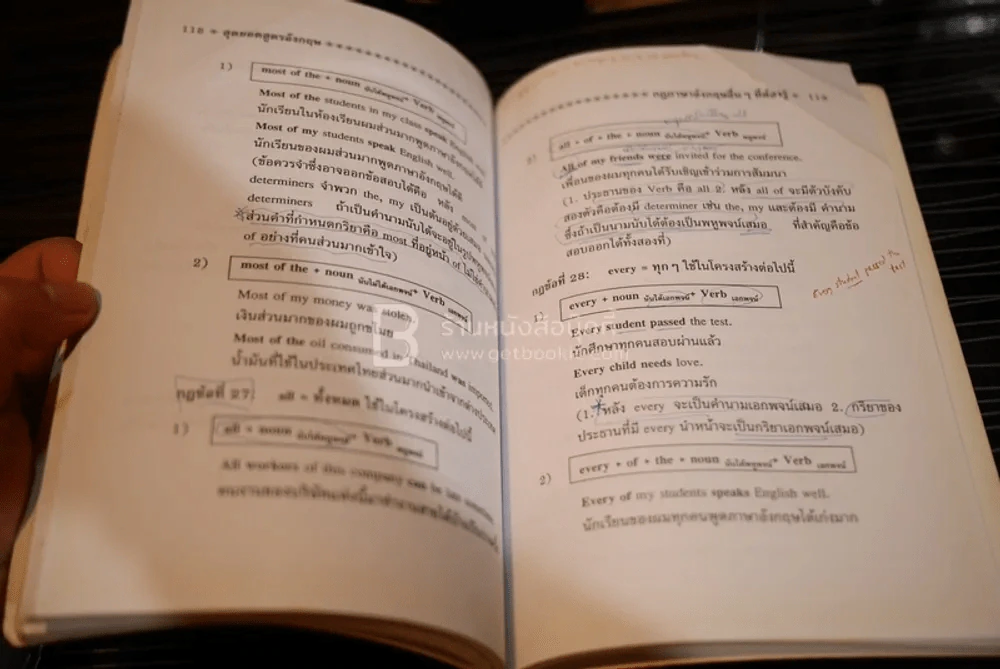 118 * สุดยอดสูตรอังกฤษ
1) most of the + noun นับได้พหูพจน์ + Verb พหูพจน์
Most of the students in my class speak English
นักเรียนในห้องเรียนผมส่วนมากพูดภาษาอังกฤษ
Most of my students speak English well.
นักเรียนของผมส่วนมากพูดภาษาอังกฤษได้ดี
(ข้อควรจำซึ่งอาจออกข้อสอบได้คือ หลัง
determiners จำพวก the, my เป็นต้นอยู่ด้วยเสมอ
determiners ถ้าเป็นคำนามนับได้จะอยู่ในรูปพหูพจน์
ส่วนคำที่กำหนดกริยาคือ most ที่อยู่หน้า of ไม่ใช่
of อย่างที่คนส่วนมากเข้าใจ)
2) most of the + noun นับไม่ได้เอกพจน์ + Verb เอกพจน์
Most of my money was stolen.
เงินส่วนมากของผมถูกขโมย
Most of the oil consumed in Thailand was imported.
น้ำมันที่ใช้ในประเทศไทยส่วนมากนำเข้าจากต่างประเทศ
กฎข้อที่ 27: all = ทั้งหมด ใช้ในโครงสร้างต่อไปนี้
1) all + noun นับได้พหูพจน์ + Verb พหูพจน์
All workers of this company can be late sometime.
กฎภาษาอังกฤษอื่น ๆ ที่ควรรู้ * 119
2) all + of + the + noun นับได้พหูพจน์ + Verb พหูพจน์
All of my friends were invited for the conference.
เพื่อนของผมทุกคนได้รับเชิญเข้าร่วมการสัมมนา
(1. ประธานของ Verb คือ all 2. หลัง all of จะมีตัวบังคับ
สองตัวคือต้องมี determiner เช่น the, my และต้องมี คำนาม
ซึ่งถ้าเป็นนามนับได้ต้องเป็นพหูพจน์เสมอ ที่สำคัญคือข้อ
สอบออกได้ทั้งสองที่)
กฎข้อที่ 28: every = ทุก ๆ ใช้ในโครงสร้างต่อไปนี้
1) every + noun นับได้เอกพจน์ + Verb เอกพจน์
Every student passed the test
Every student passed the test.
นักศึกษาทุกคนสอบผ่านแล้ว
Every child needs love.
เด็กทุกคนต้องการความรัก
(1. หลัง every จะเป็นคำนามเอกพจน์เสมอ 2. กริยาของ
ประธานที่มี every นำหน้าจะเป็นกริยาเอกพจน์เสมอ)
2) every + of + the + noun นับได้พหูพจน์ + Verb เอกพจน์
Every of my students speaks English well.
นักเรียนของผมทุกคนพูดภาษาอังกฤษได้เก่งมาก
B ร้านหนังสือ
www.getbook